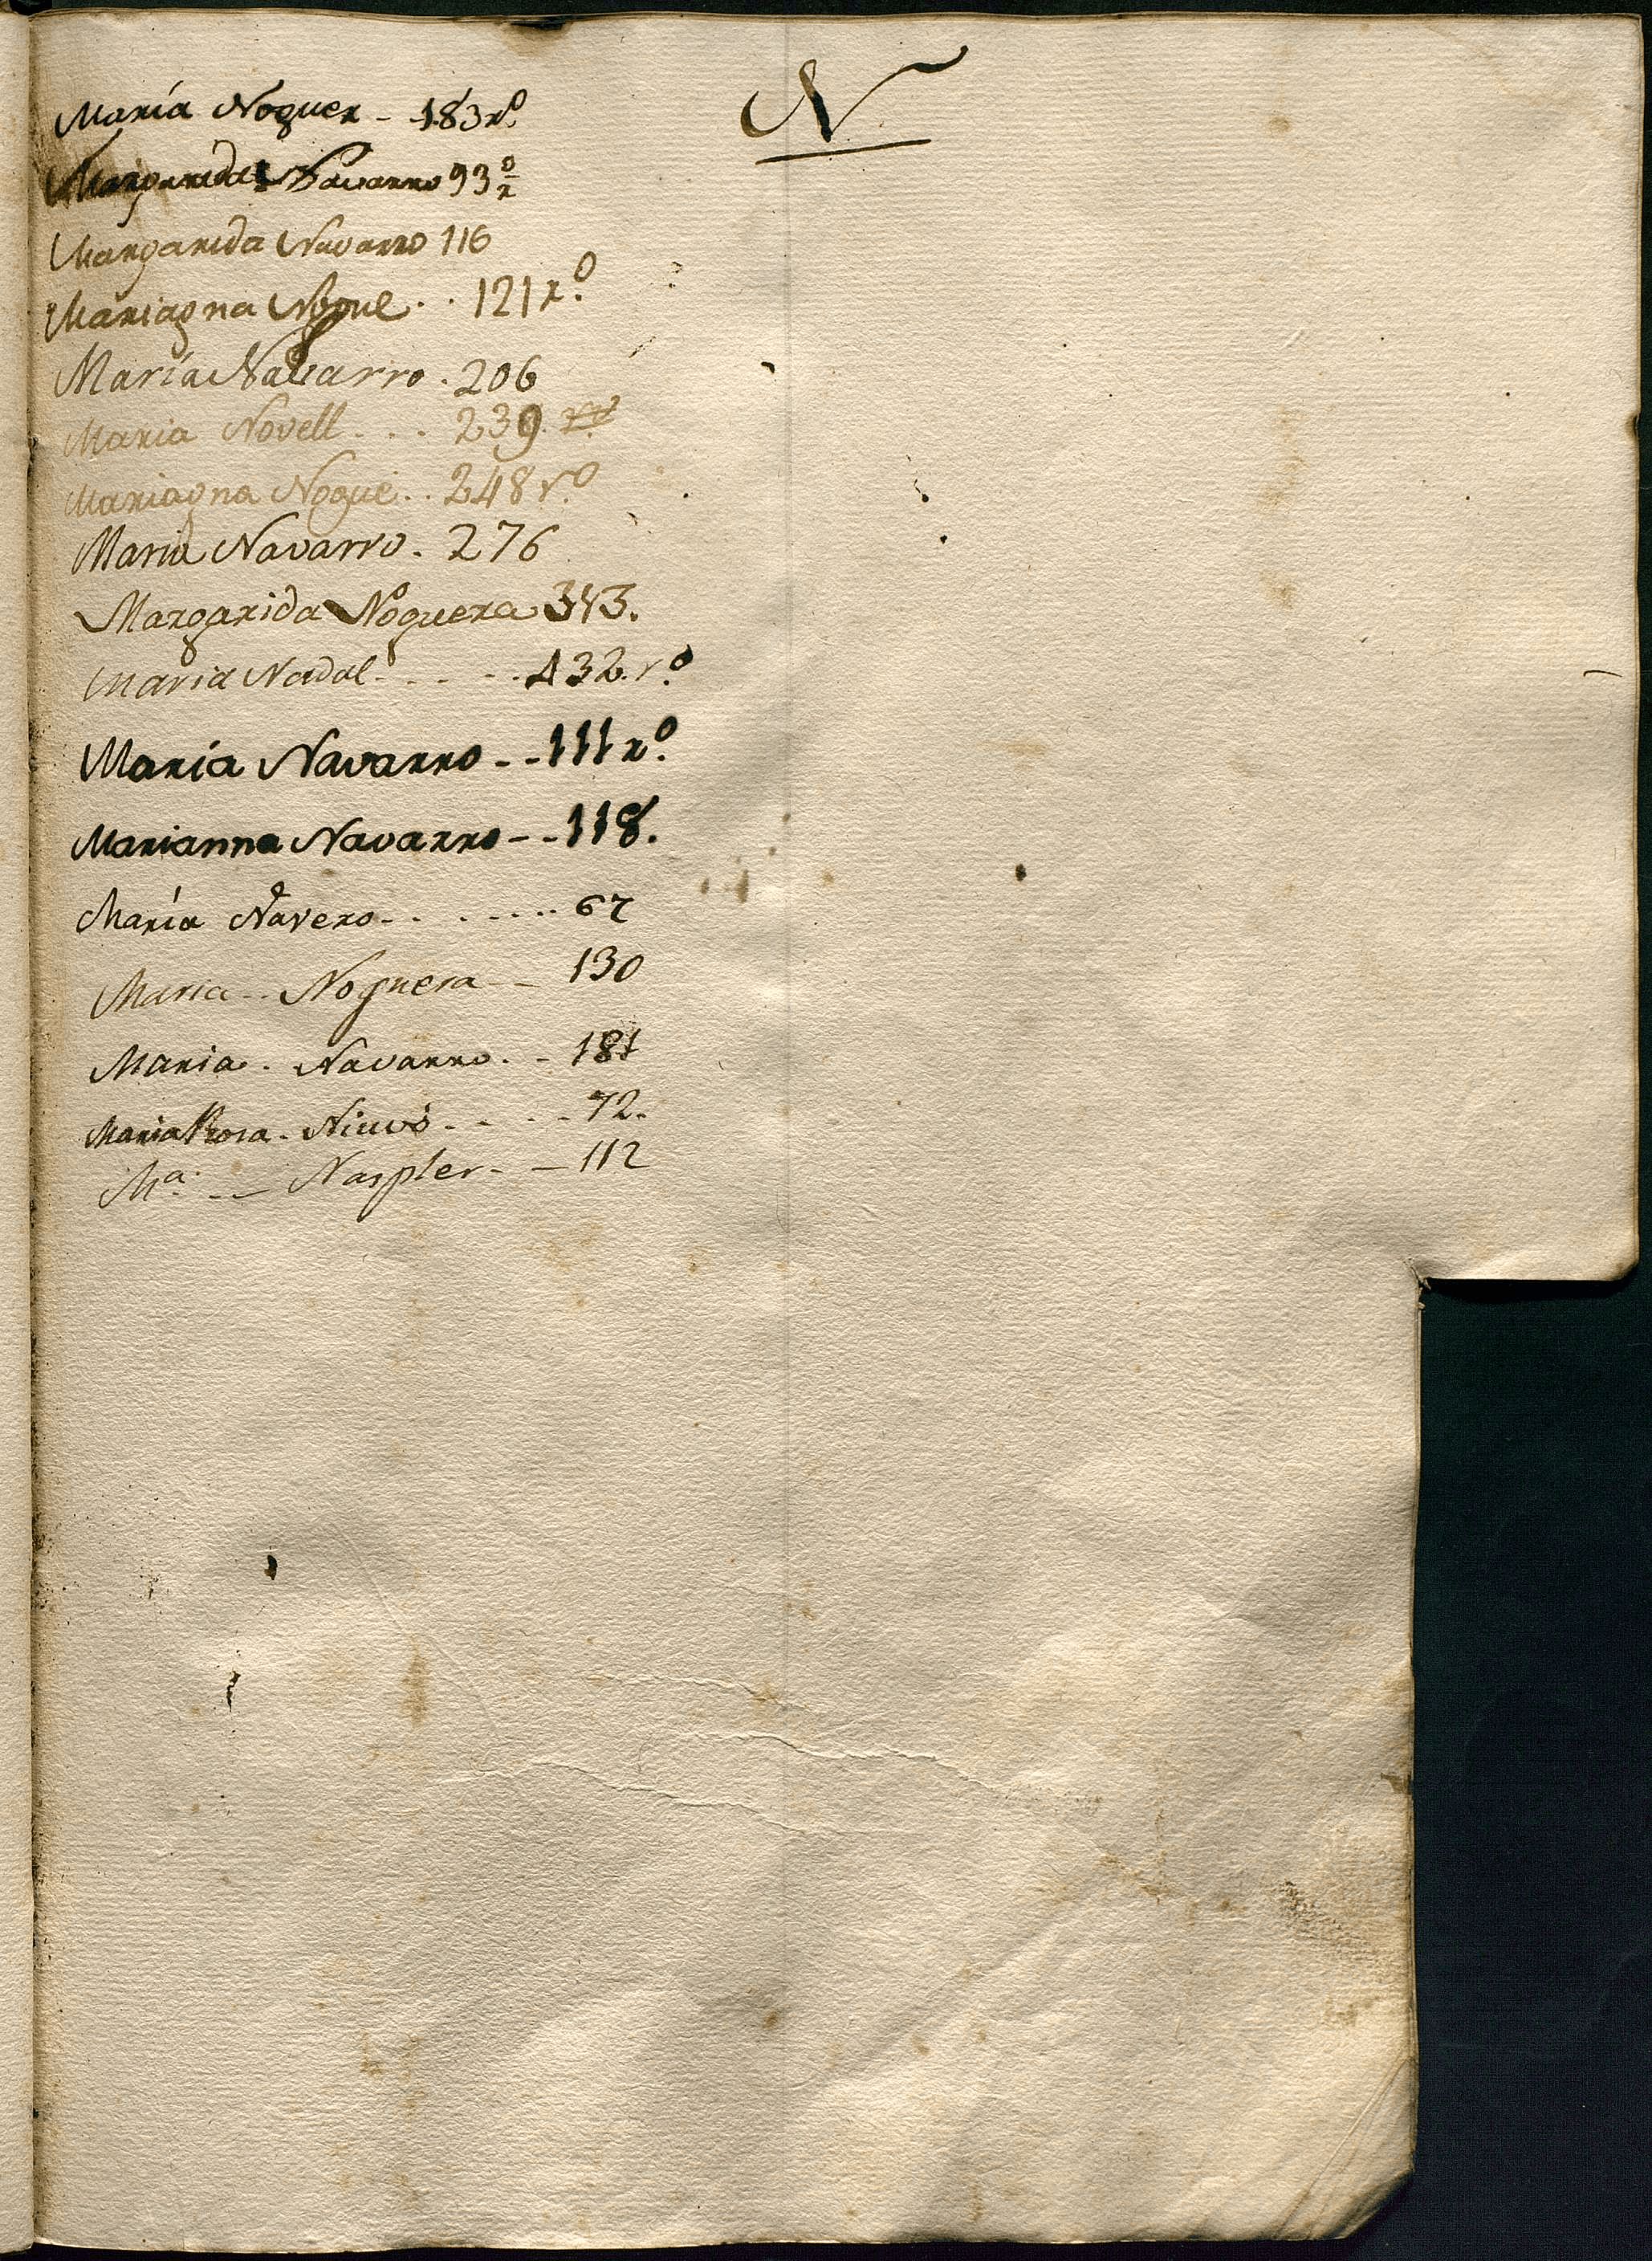 N
María Noguer - 183 rº.
Margarida Navarro 93 rº
Margarida Navarro 116
Mariagna Nogue . . 121 rº.
María Navarro . 206
Maria Novell . . . 239
Mariagna Nogué . . 248 rº.
Maria Navarro . 276
Margarida Noguera 343.
Maria Nadal - - - - - . 432. rº.
María Navarro - - 111 rº.
Marianna Navarro - - 118.
María Navero - . . . . . . 67
Maria - - Noguera - - 130
Maria . Navarro . - 181
Maria Rosa . - - - - 72.
Mª. - - Naspler - - 112